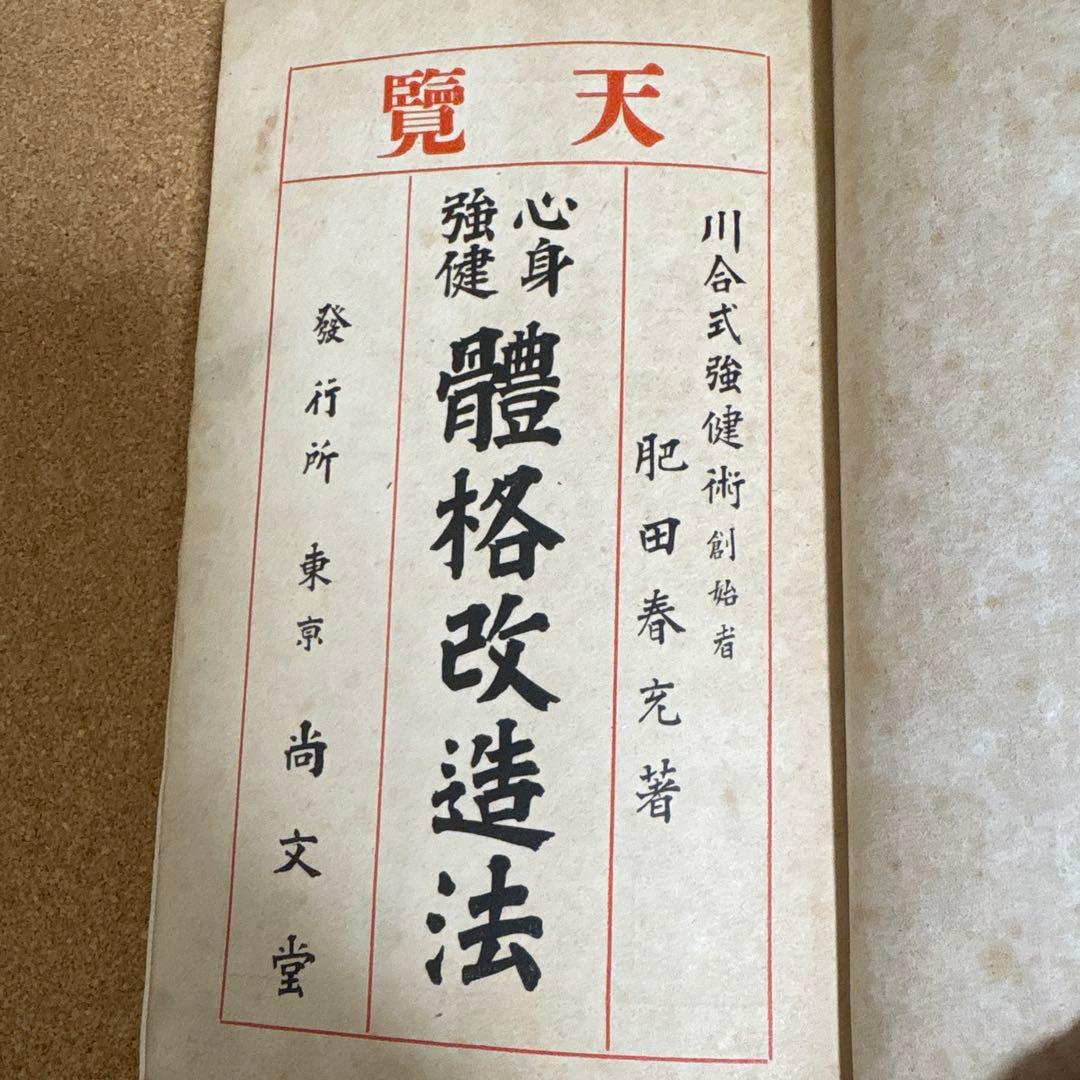 天覽
川合式強健術創始者
肥田春充著
心身
強健
體格改造法
發行所 東京 尚文堂